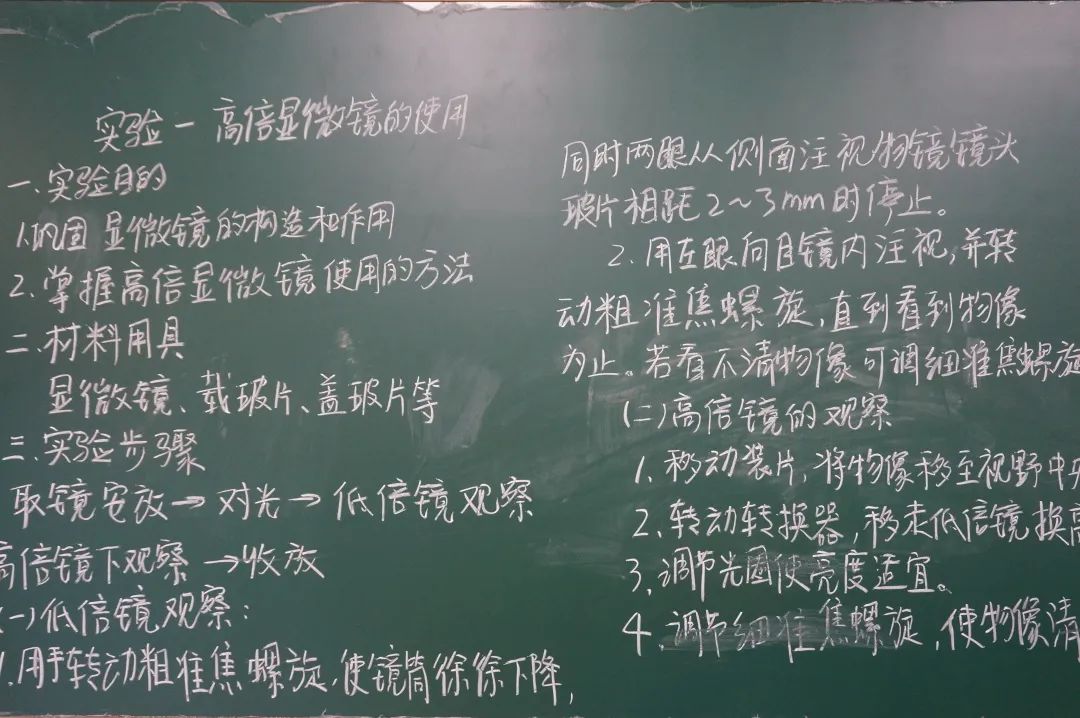 实验一 高倍显微镜的使用
一.实验目的
1.巩固显微镜的构造和作用
2.掌握高倍显微镜使用的方法
二.材料用具
显微镜、载玻片、盖玻片等
三.实验步骤
取镜安放→对光→低倍镜观察
高倍镜下观察→收放
(一)低倍镜观察:
1.用手转动粗准焦螺旋,使镜筒徐徐下降,
同时两眼从侧面注视物镜镜头
玻片相距2~3mm时停止。
2.用左眼向目镜内注视,并转
动粗准焦螺旋,直到看到物像
为止。若看不清物像可调细准焦螺旋
(二)高倍镜的观察
1.移动装片,将物像移至视野中央
2.转动转换器,移走低倍镜换高
3.调节光圈使亮度适宜。
4.调节细准焦螺旋,使物像清